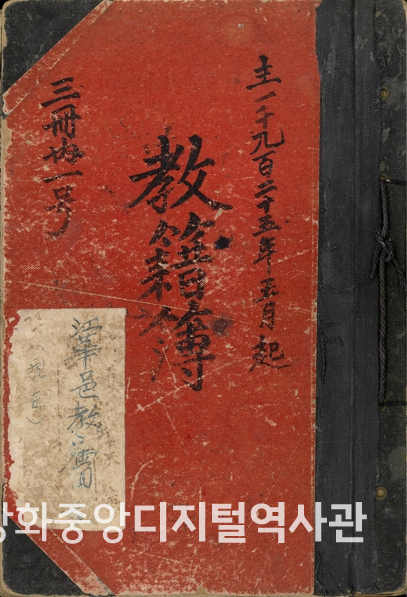 主一千九百二十五年五月起
教籍簿
三冊地一号
江華邑教會
강화중앙디지털역사관